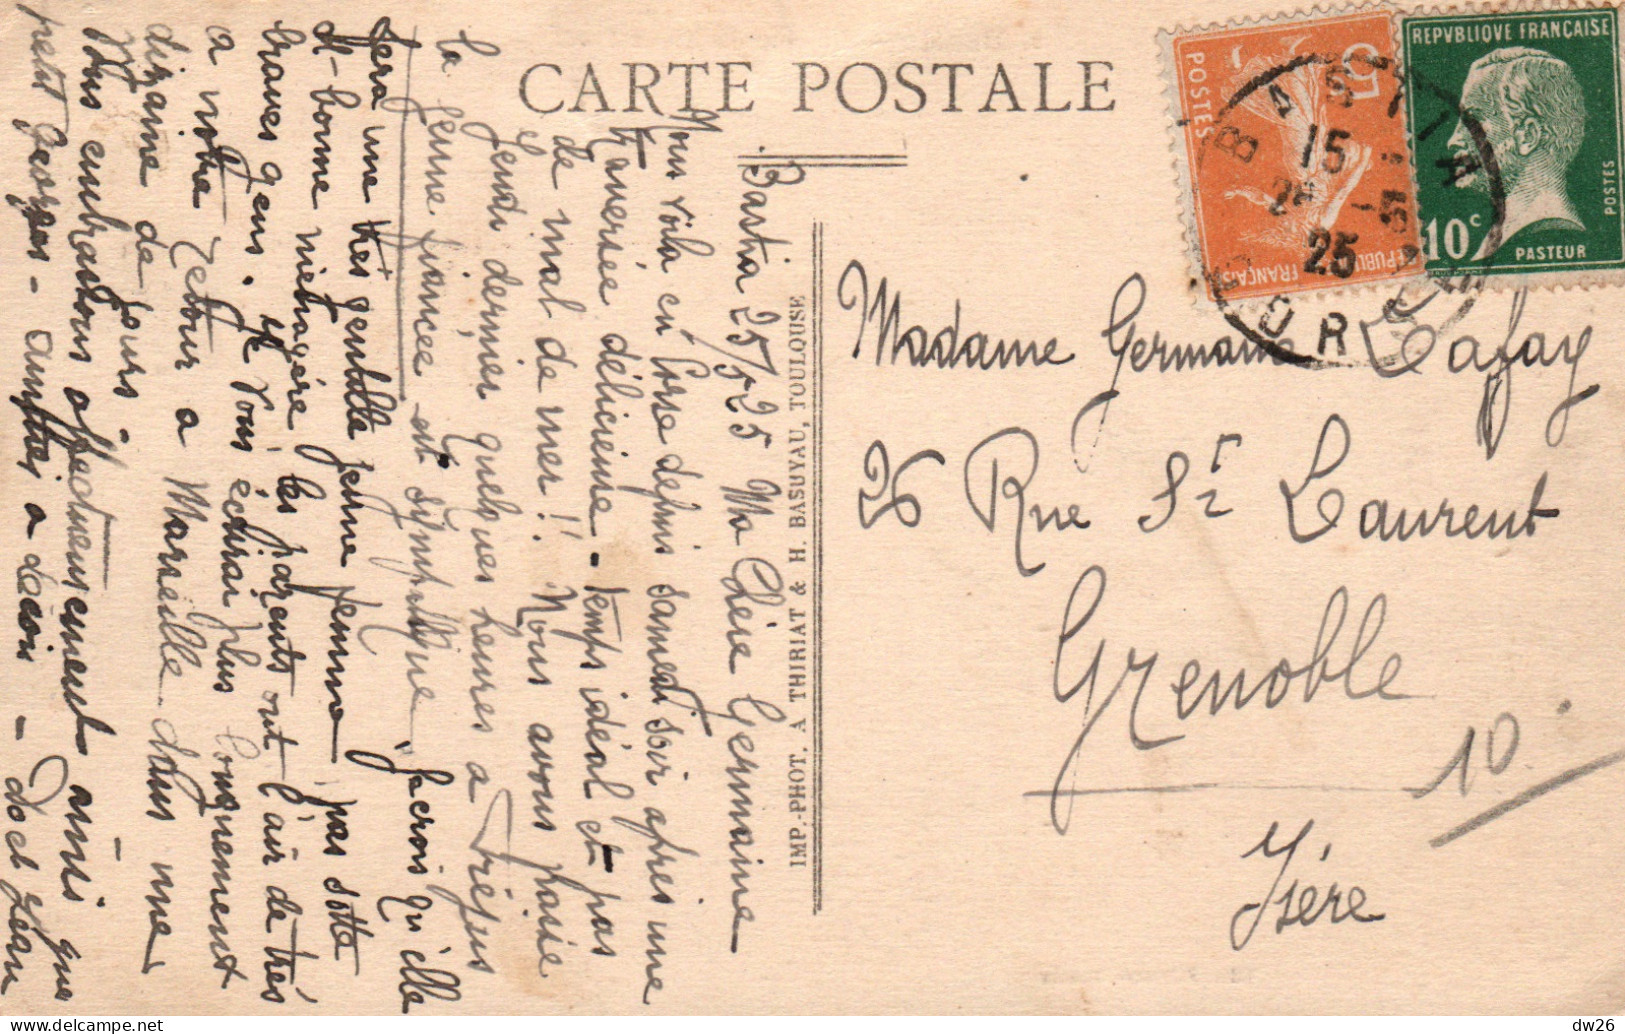 CARTE POSTALE
REPVBLIQUE FRANÇAISE
10c
PASTEUR
POSTES
5
POSTES
REPUBLIQUE FRANÇAISE
BASTIA
15
25 -5
25
CORSE
Madame Germaine Lafay
26 Rue St Laurent
Grenoble
10
Isère
IMP.-PHOT. A THIRIAT & H. BASUYAU, TOULOUSE
Bastia 25/5-25 Ma Chère Germaine
Nous voilà en Corse depuis samedi soir après une
traversée délicieuse - temps idéal et pas
de mal de mer!! Nous avons passé
jeudi dernier quelques heures a Fréjus
la jeune fiancée est sympathique je crois qu'elle
fera une très gentille jeune femme pas sotte
et bonne ménagère les parents ont l'air de très
braves gens. Je vous écrirai plus longuement
a notre retour a Marseille dans une
dizaine de jours.
Nous vous embrassons affectueusement ainsi que
petit Georges - amitiés a - Doct Jean
dw26